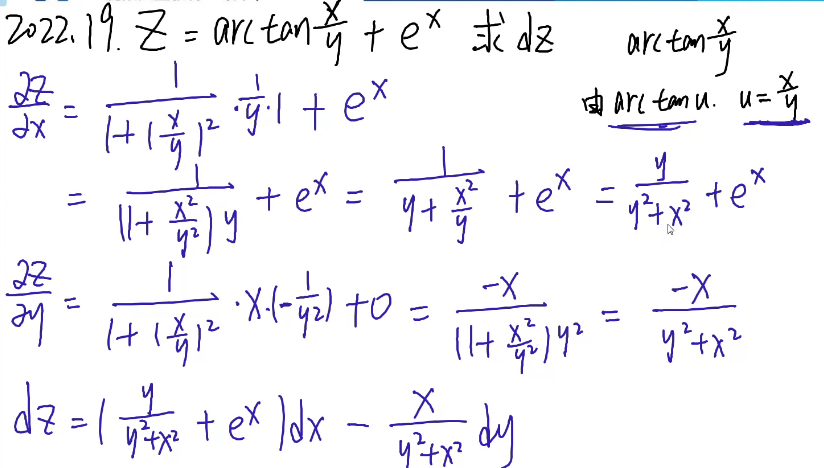 2022.19. Z = arctan x/y + e^x 求dz
arctan x/y
由 arctan u. u = x/y
∂z/∂x = 1/(1+(x/y)²) · 1/y · 1 + e^x
= 1/((1+x²/y²)y) + e^x = 1/(y+x²/y) + e^x = y/(y²+x²) + e^x
∂z/∂y = 1/(1+(x/y)²) · x·(-1/y²) + 0 = -x/((1+x²/y²)y²) = -x/(y²+x²)
dz = (y/(y²+x²) + e^x)dx - x/(y²+x²) dy